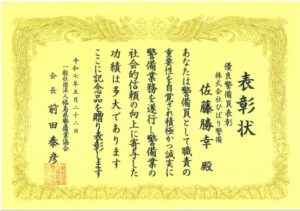 表彰状
優良警備員表彰
株式会社ひばり警備
佐藤勝幸 殿
あなたは警備員として職責の
重要性を自覚され積極かつ誠実に
警備業務を遂行し警備業の
社会的信頼の向上に寄与した
功績は多大であります
ここに記念品を贈り表彰します
令和七年五月二十二日
一般社団法人福島県警備業協会
会長 前田泰彦